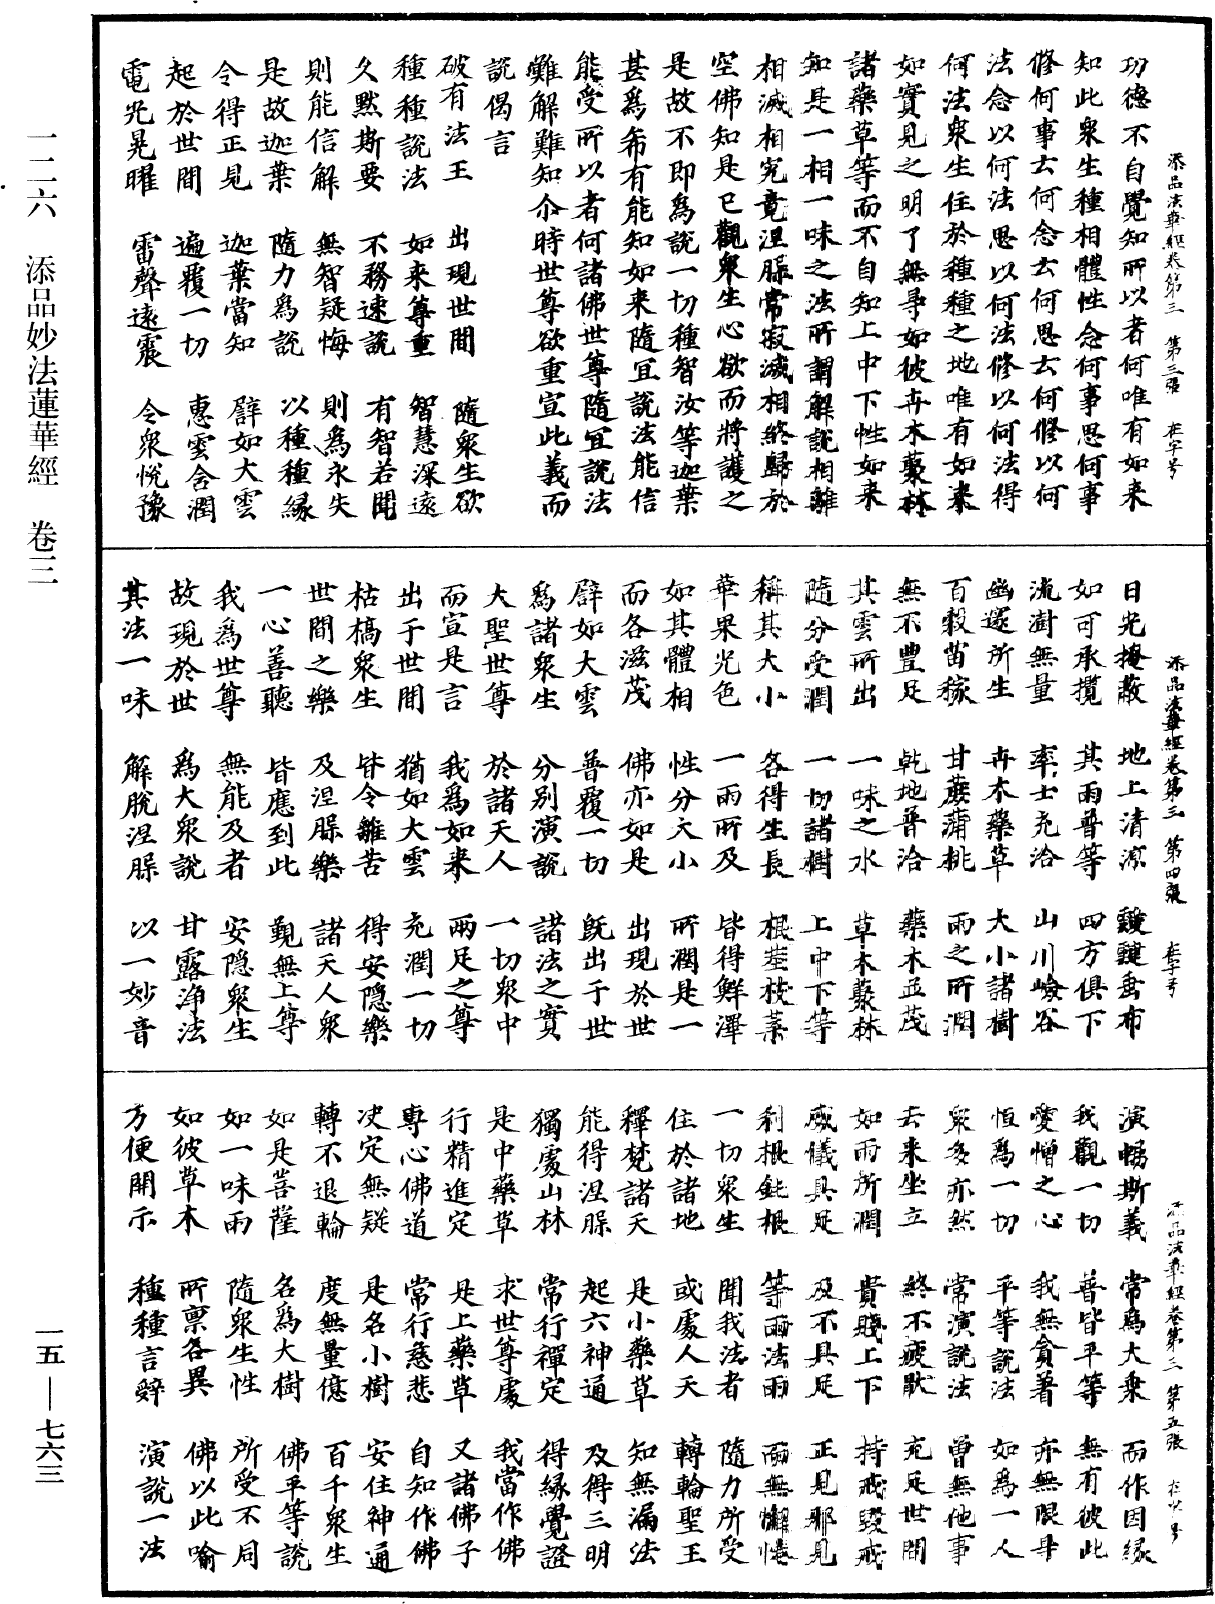 一二六　添品妙法蓮華經　卷三
一五——七六三
添品法華經卷第三　第三張　在字号
功德不自覺知所以者何唯有如来
知此衆生種相體性念何事思何事
修何事云何念云何思云何修以何
法念以何法思以何法修以何法得
何法衆生住於種種之地唯有如来
如實見之明了無㝵如彼卉木藂林
諸藥草等而不自知上中下性如来
知是一相一味之法所謂解脫相離
相滅相究竟涅槃常寂滅相終歸於
空佛知是已觀衆生心欲而將護之
是故不即為說一切種智汝等迦葉
甚為希有能知如来隨宜說法能信
能受所以者何諸佛世尊隨宜說法
難解難知尒時世尊欲重宣此義而
說偈言
破有法王　出現世間　隨衆生欲
種種說法　如来尊重　智慧深遠
久默斯要　不務速說　有智若聞
則能信解　無智疑悔　則為永失
是故迦葉　隨力為說　以種種緣
令得正見　迦葉當知　譬如大雲
起於世間　遍覆一切　惠雲含潤
電光晃曜　雷聲遠震　令衆悅豫
添品法華經卷第三　第四張　在字号
日光掩蔽　地上清涼　靉靆垂布
如可承攬　其雨普等　四方俱下
流澍無量　率土充洽　山川嶮谷
幽邃所生　卉木藥草　大小諸樹
百穀苗稼　甘蔗蒲桃　雨之所潤
無不豐足　乾地普洽　藥木並茂
其雲所出　一味之水　草木藂林
隨分受潤　一切諸樹　上中下等
稱其大小　各得生長　根莖枝葉
華果光色　一雨所及　皆得鮮澤
如其體相　性分大小　所潤是一
而各滋茂　佛亦如是　出現於世
譬如大雲　普覆一切　既出于世
為諸衆生　分别演說　諸法之實
大聖世尊　於諸天人　一切衆中
而宣是言　我為如来　兩足之尊
出于世間　猶如大雲　充潤一切
枯槁衆生　皆令離苦　得安隱樂
世間之樂　及涅槃樂　諸天人衆
一心善聽　皆應到此　覲無上尊
我為世尊　無能及者　安隱衆生
故現於世　為大衆說　甘露淨法
其法一味　解脫涅槃　以一妙音
添品法華經卷第三　第五張　在字号
演暢斯義　常為大乗　而作因緣
我觀一切　普皆平等　無有彼此
愛憎之心　我無貪著　亦無限㝵
恒為一切　平等說法　如為一人
衆多亦然　常演說法　曾無他事
去来坐立　終不疲猒　充足世間
如雨所潤　貴賤上下　持戒毀戒
威儀具足　及不具足　正見邪見
利根鈍根　等雨法雨　而無懈惓
一切衆生　聞我法者　隨力所受
住於諸地　或處人天　轉輪聖王
釋梵諸天　是小藥草　知無漏法
能得涅槃　起六神通　及得三明
獨處山林　常行禪定　得緣覺證
是中藥草　求世尊處　我當作佛
行精進定　是上藥草　又諸佛子
專心佛道　常行慈悲　自知作佛
決定無疑　是名小樹　安住神通
轉不退輪　度無量億　百千衆生
如是菩薩　名為大樹　佛平等說
如一味雨　隨衆生性　所受不同
如彼草木　所禀各異　佛以此喻
方便開示　種種言辝　演說一法